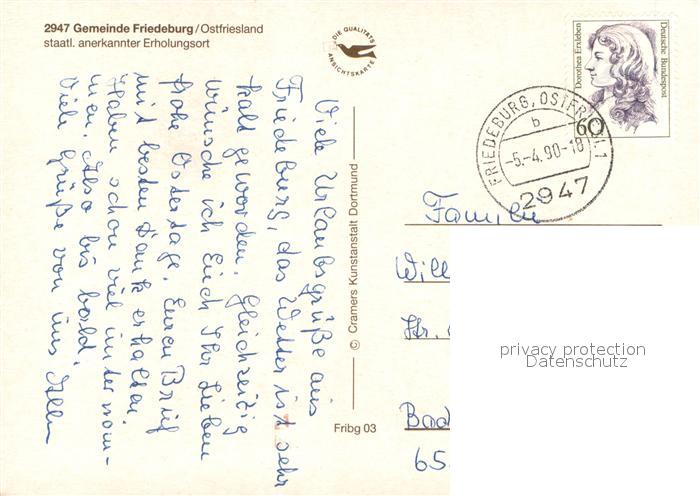 2947 Gemeinde Friedeburg/Ostfriesland
staatl. anerkannter Erholungsort
DIE QUALITÄTS
ANSICHTSKARTE
Viele Urlaubsgrüße aus
Friedeburg, das Wetter ist sehr
kalt geworden. Gleichzeitig
wünsche ich Euch Ihr Lieben
frohe Ostertage. Euren Brief
mit besten Dank erhalten
Haben schon viel unternom-
men. Also bis bald.
Viele Grüße von uns Allen
© Cramers Kunstanstalt Dortmund
Fribg 03
Dorothea Erxleben
Deutsche Bundespost
60
FRIEDEBURG, OSTFRIESL 1
b
-5.-4.90-18
2947
Familie
Will
Str.
privacy protection
Datenschutz
Bad
65